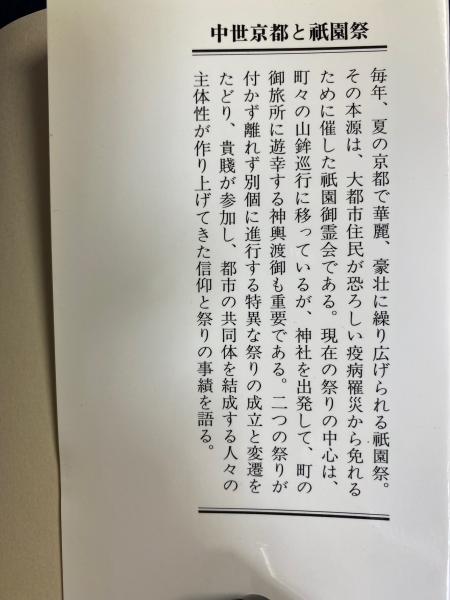 中世京都と祇園祭
毎年、夏の京都で華麗、豪壮に繰り広げられる祇園祭。
その本源は、大都市住民が恐ろしい疫病罹災から免れる
ために催した祇園御霊会である。現在の祭りの中心は、
町々の山鉾巡行に移っているが、神社を出発して、町の
御旅所に遊幸する神輿渡御も重要である。二つの祭りが
付かず離れず別個に進行する特異な祭りの成立と変遷を
たどり、貴賤が参加し、都市の共同体を結成する人々の
主体性が作り上げてきた信仰と祭りの事績を語る。